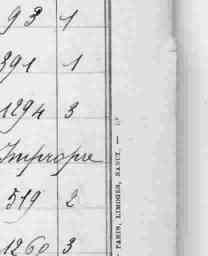 93 1
391 1
1294 3
Impropre
519 2
1260 3
PARIS, LIMOGES, NANCY. —